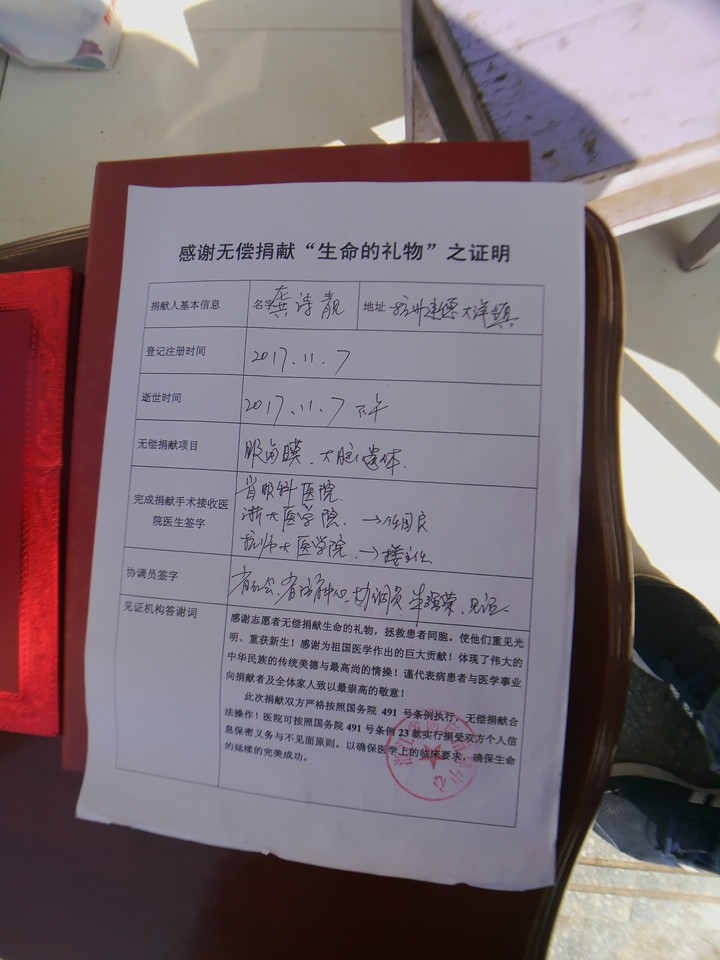 感谢无偿捐献“生命的礼物”之证明
捐献人基本信息 名字 龚诗靓 地址 杭州建德大洋镇
登记注册时间 2017.11.7
逝世时间 2017.11.7 下午
无偿捐献项目 眼角膜、大脑、遗体.
完成捐献手术接收医院医生签字
省眼科医院
浙大医学院. →
杭师大医学院. →
协调员签字 协调员
见证机构答谢词
感谢志愿者无偿捐献生命的礼物，拯救患者同胞。使他们重见光
明、重获新生！感谢为祖国医学作出的巨大贡献！体现了伟大的
中华民族的传统美德与最高尚的情操！谨代表病患者与医学事业
向捐献者及全体家人致以最崇高的敬意！
此次捐献双方严格按照国务院 491 号条例执行，无偿捐献合
法操作！医院可按照国务院 491 号条例 23 款实行捐受双方个人信
息保密义务与不见面原则。以确保医学上的临床要求，确保生命
的延续的完美成功。